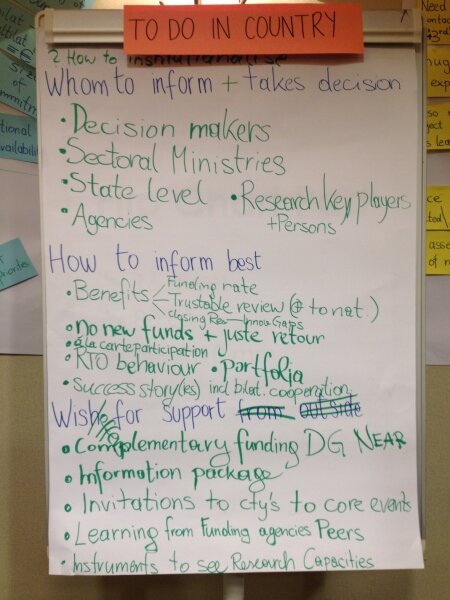 TO DO IN COUNTRY
2 How to institutionalise
Whom to inform + takes decision
• Decision makers
• Sectoral Ministries
• State level • Research key players
+ Persons
• Agencies
How to inform best
• Benefits Funding rate
Trustable review (≠ to nat.)
closing Res – Innov Gaps
• No new funds + juste retour
• à la carte participation
• RTO behaviour • Portfolia
• Success story(ies) incl bilat. cooperation.
Wish for support from outside
• Complementary funding DG NEAR
• Information package
• Invitations to cty's to core events
• Learning from Funding agencies Peers
• Instruments to see Research Capacities
Need
of